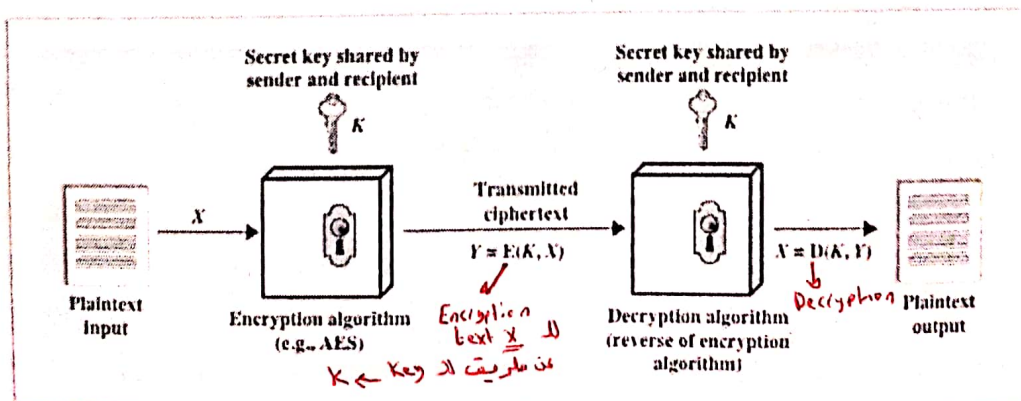 Secret key shared by
sender and recipient
K
Secret key shared by
sender and recipient
K
X
Transmitted
ciphertext
Y = E(K, X)
X = D(K, Y)
Plaintext
input
Encryption algorithm
(e.g., AES)
Encryption
لل text X
عن طريق ال Key ← K
Decryption algorithm
(reverse of encryption
algorithm)
Decryption
Plaintext
output